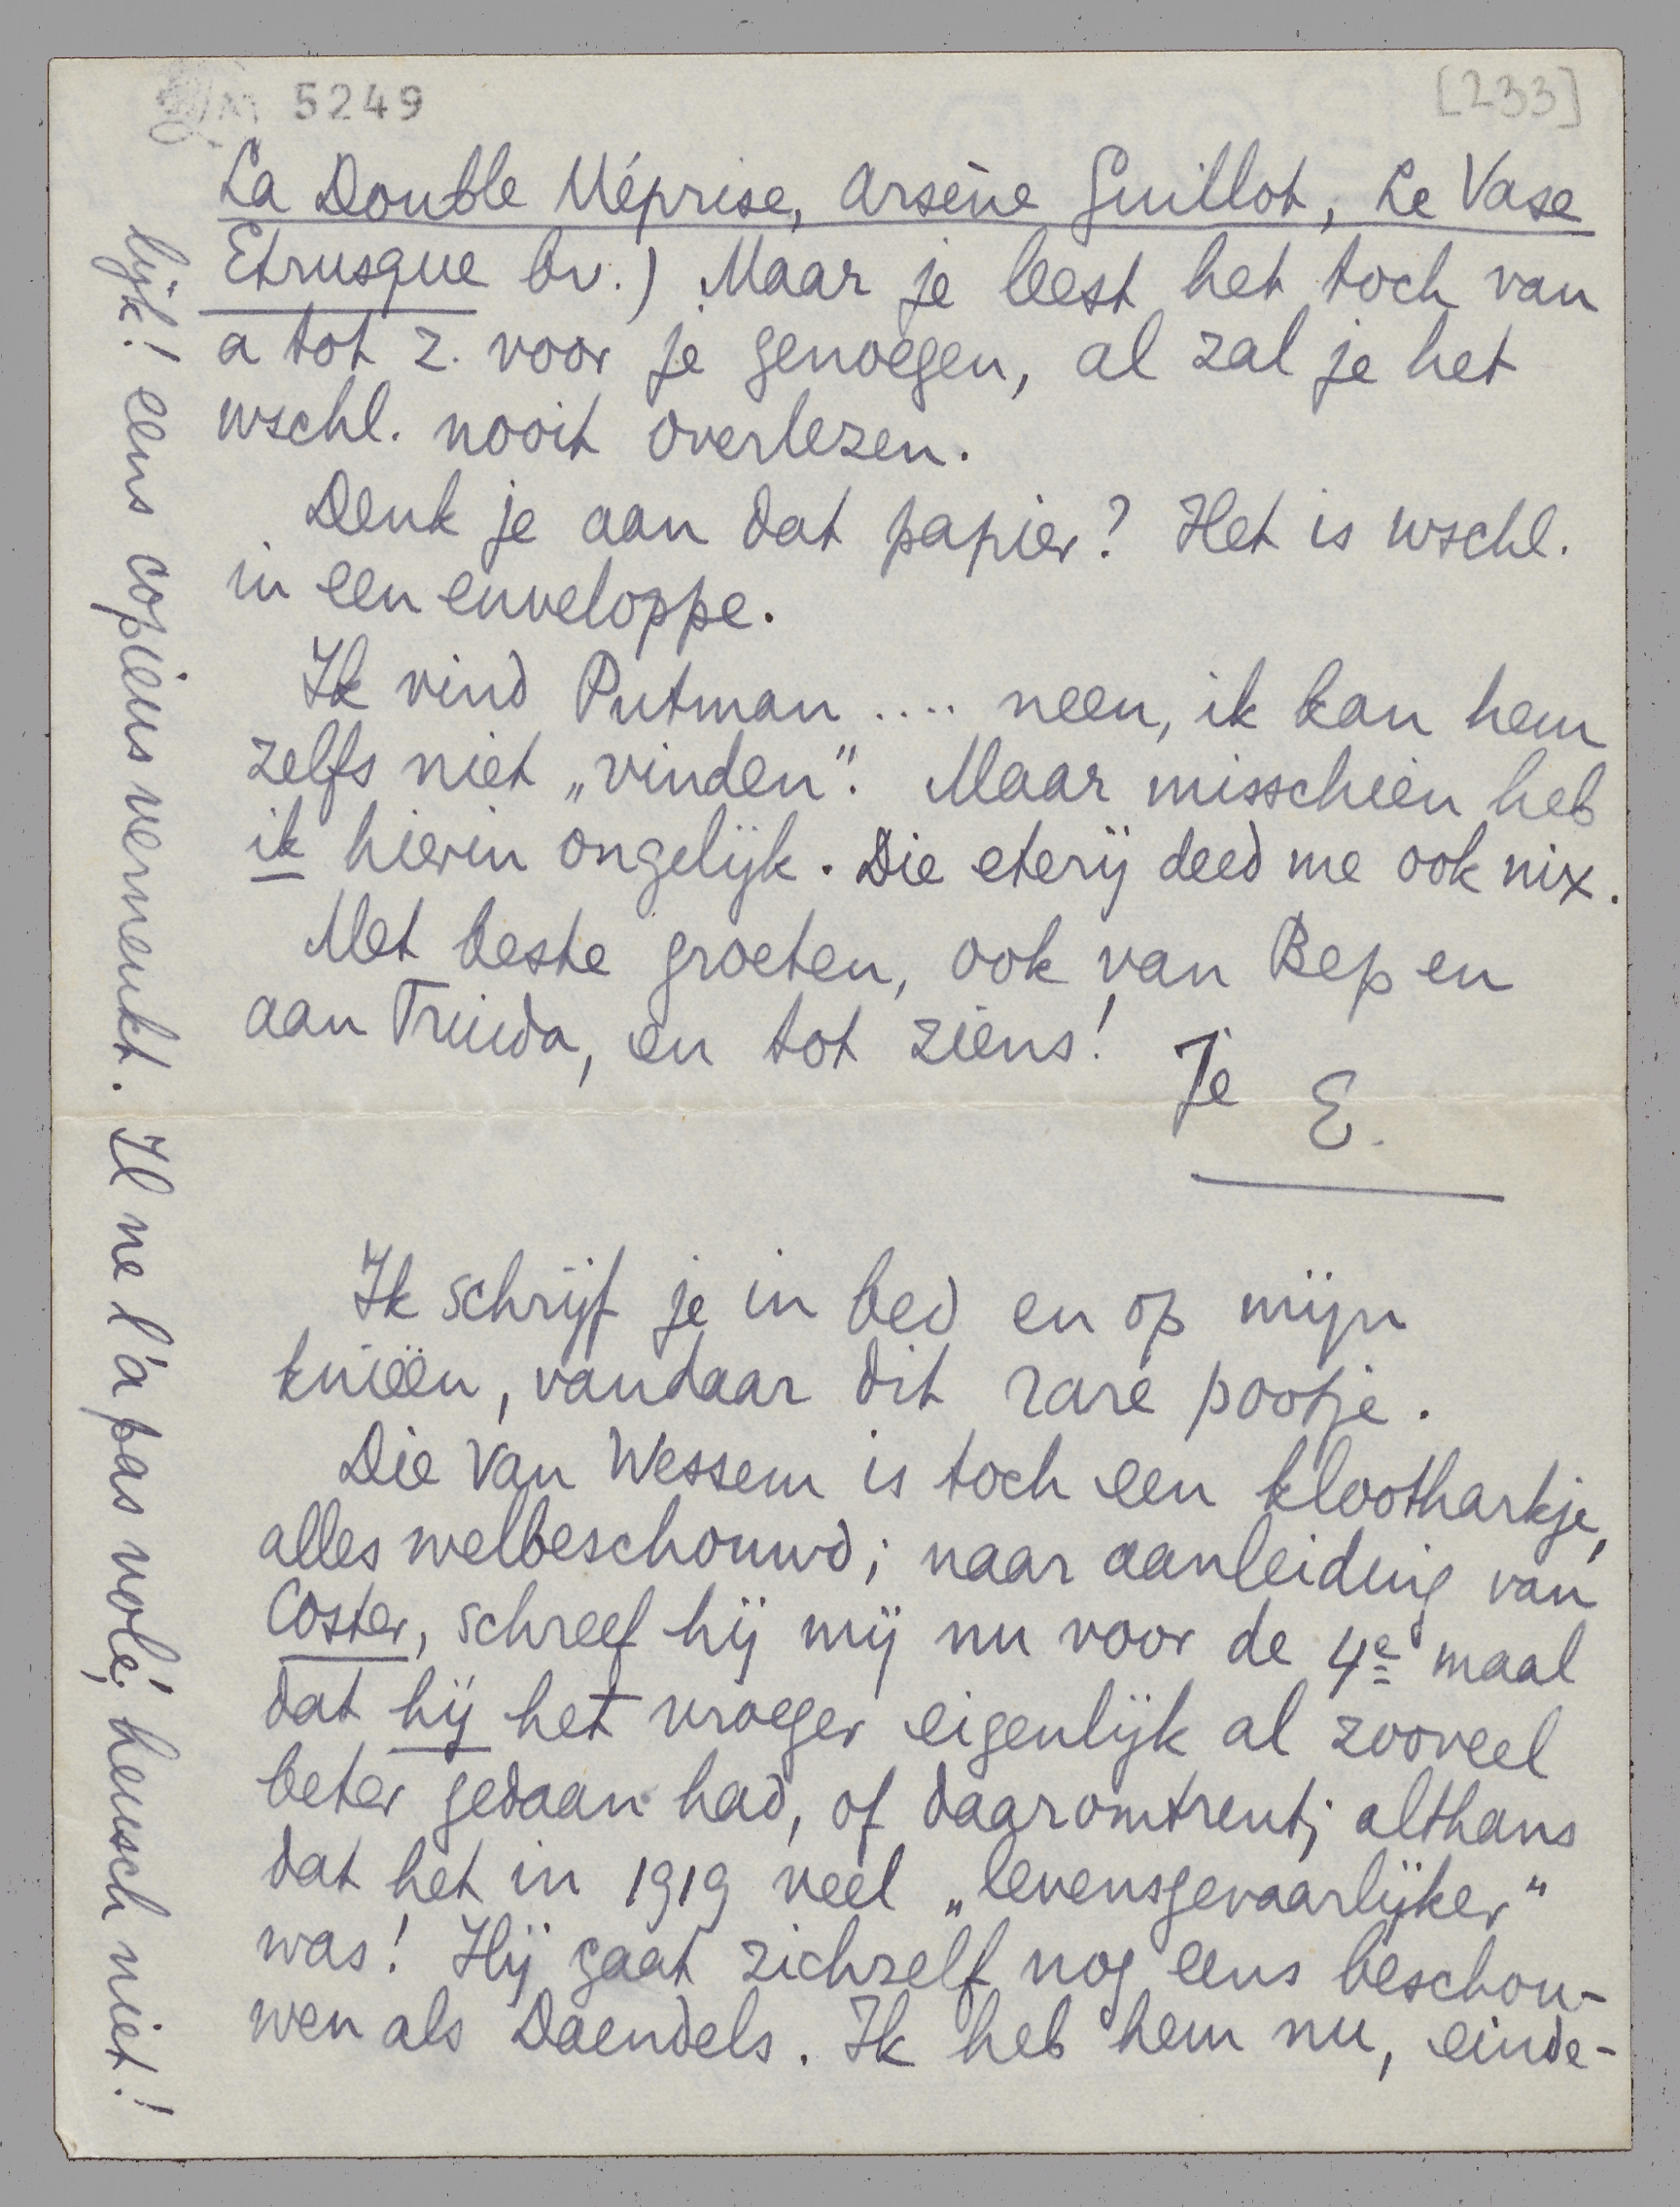 5249
[233]
La Double Méprise, Arsène Guillot, Le Vase
Etrusque bv.) Maar je leest het toch van
a tot z. voor je genoegen, al zal je het
wschl. nooit overlezen.
Denk je aan dat papier? Het is wschl.
in een enveloppe.
Ik vind Putman .... neen, ik kan hem
zelfs niet „vinden". Maar misschien heb
ik hierin ongelijk. Die eterij deed me ook nix.
Met beste groeten, ook van Bep en
aan Truida, en tot ziens!
Je
E.
Ik schrijf je in bed en op mijn
knieën, vandaar dit rare pootje.
Die Van Wessem is toch een klootharkje,
alles welbeschouwd; naar aanleiding van
Coster, schreef hij mij nu voor de 4e maal
dat hij het vroeger eigenlijk al zooveel
beter gedaan had, of daaromtrent; althans
dat het in 1919 veel „levensgevaarlijker"
was! Hij gaat zichzelf nog eens beschou-
wen als Daendels. Ik heb hem nu, einde-
lijk! eens copieus vernenkt. Il ne l'a pas volé; heusch niet!